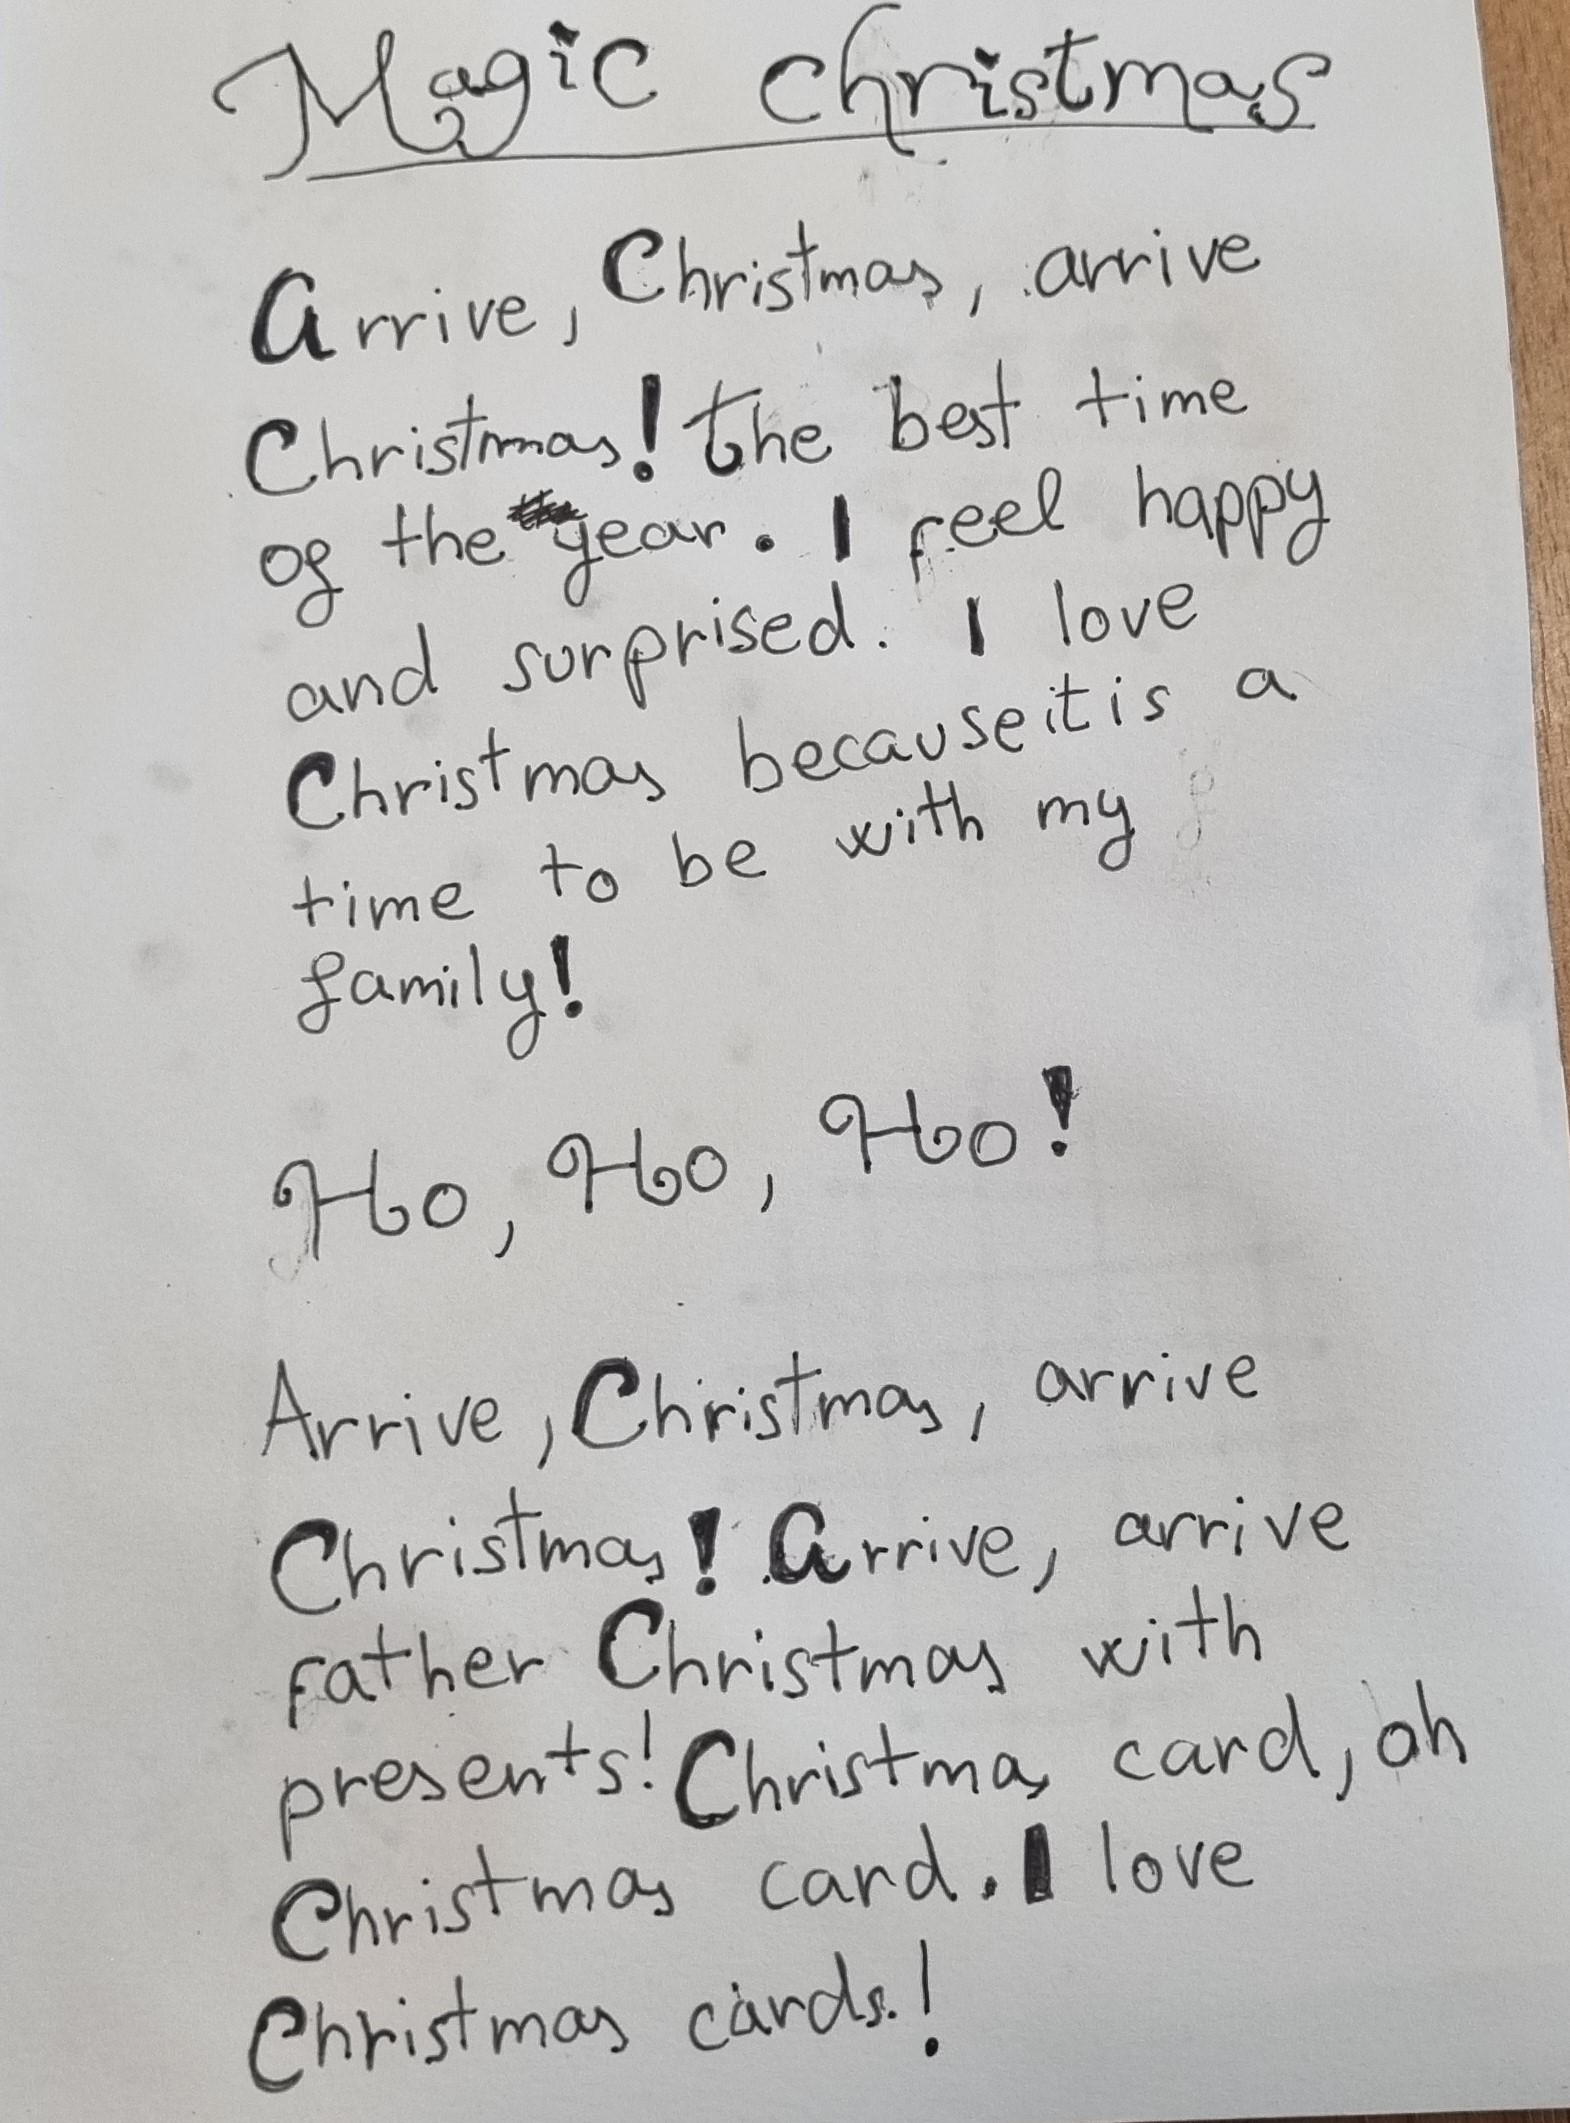 Magic christmas
Arrive, Christmas, arrive
Christmas! The best time
of the year. I feel happy
and surprised. I love
Christmas because it is a
time to be with my
family!
Ho, Ho, Ho!
Arrive, Christmas, arrive
Christmas! Arrive, arrive
father Christmas with
presents! Christmas card, oh
Christmas card. I love
Christmas cards.!